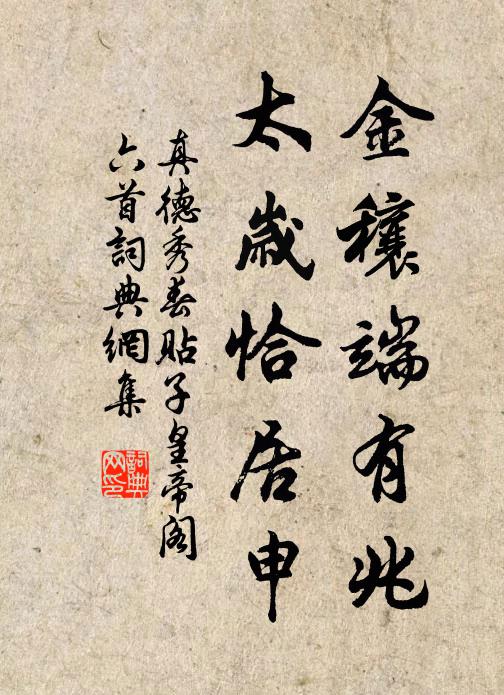 金穰端有兆
太歲恰居申
真德秀春貼子皇帝閣
六首詞典網集
詞典網印